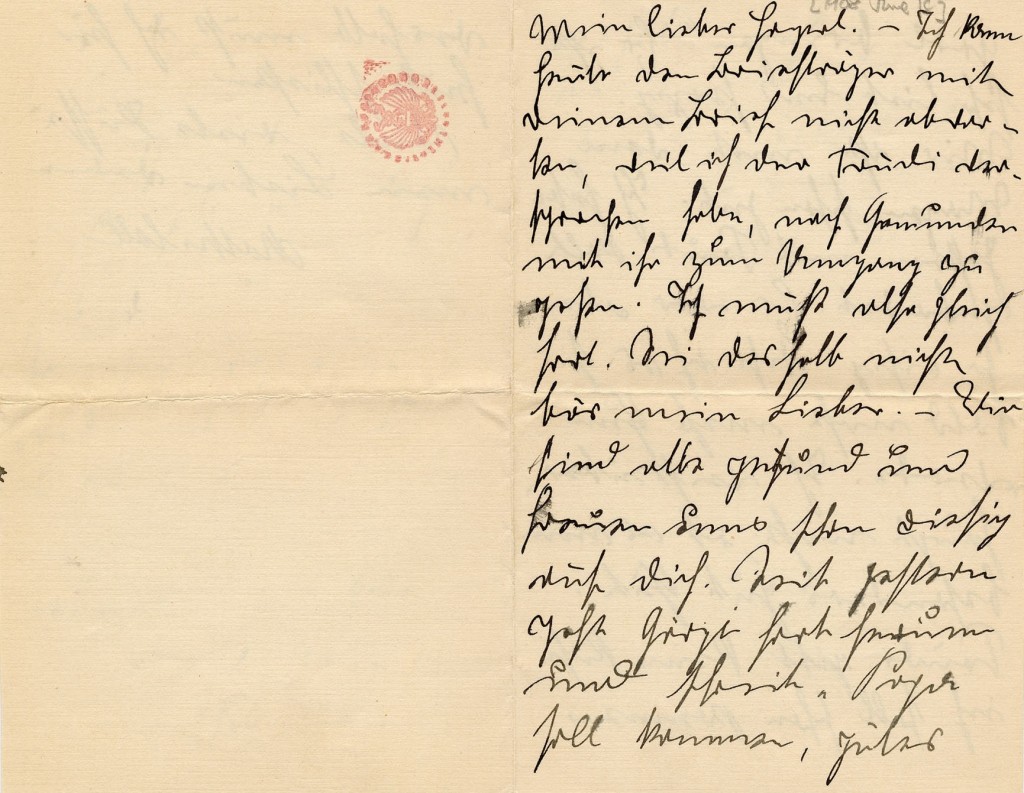 Mein lieber Hagerl. – Ich kann
heute den Briefträger mit
deinem Brief nicht abwar-
ten, weil ich der Trudi ver-
sprochen habe, nach Gmunden
mit ihr zum Umgang zu
gehen. Ich muß also gleich
fort. Sei deshalb nicht
bös mein Lieber. – Wir
sind alle gesund und
freuen uns schon riesig
auf dich. Seit gestern
geht Görgi fort herum
und schreit „Papa
soll kommen, gutes